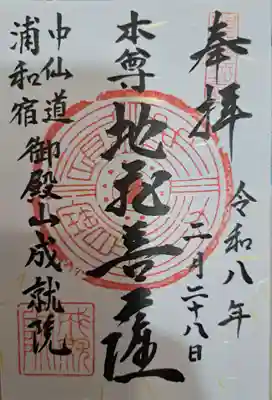 奉拝
令和八年
二月二十八日
本尊
地蔵菩薩
中仙道
浦和宿御殿山成就院